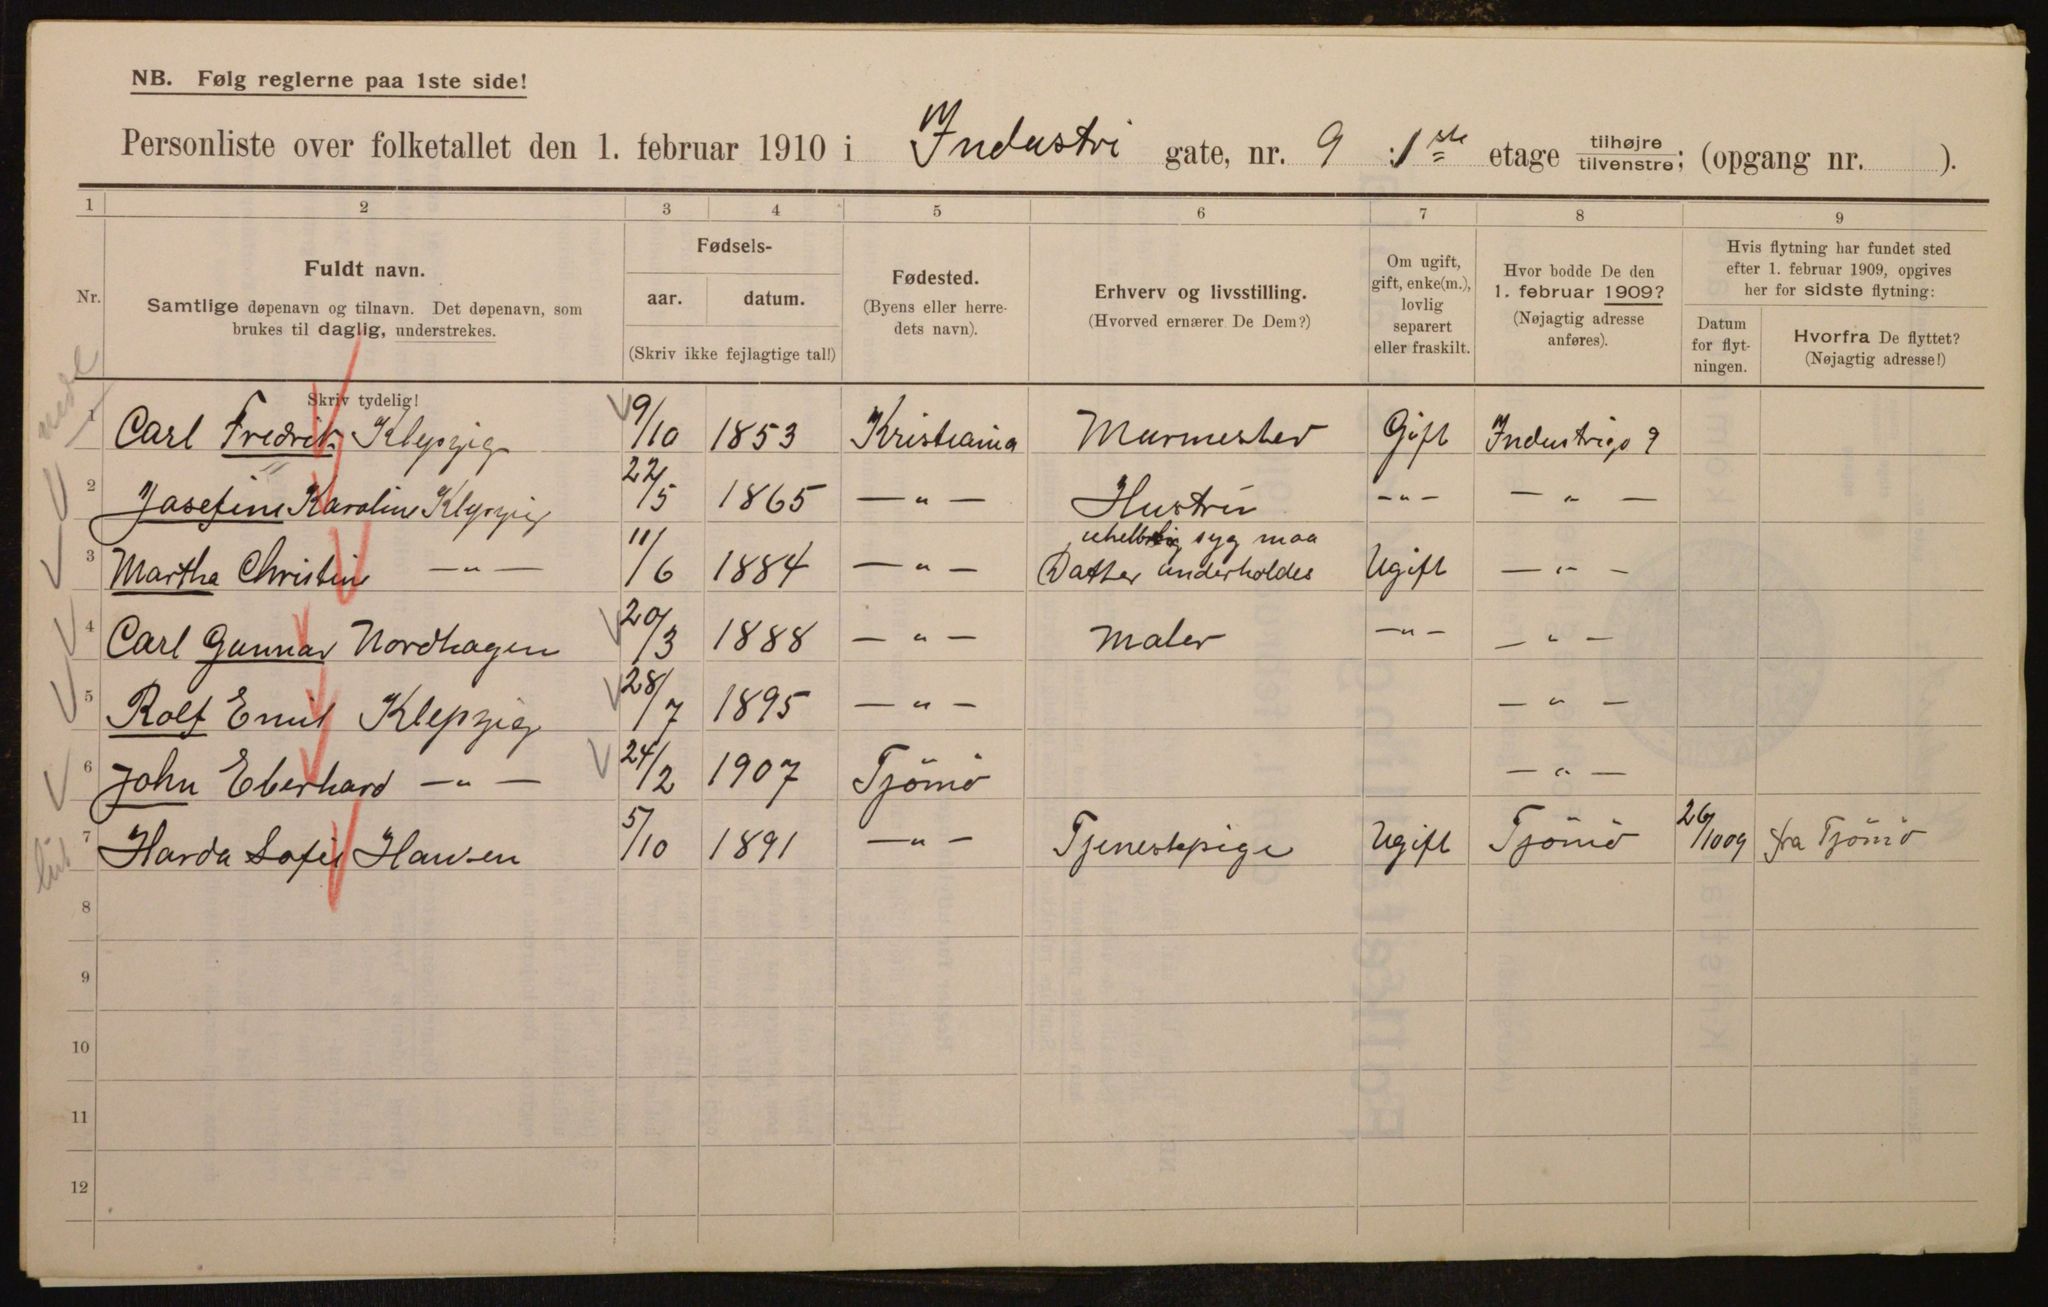 NB. Følg reglerne paa 1ste side!
Personliste over folketallet den 1. februar 1910 i Industri gate, nr. 9 1ste etage tilhøjre tilvenstre; (opgang nr. ).
1 2 3 4 5 6 7 8 9
Nr.
Fuldt navn.
Samtlige døpenavn og tilnavn. Det døpenavn, som
brukes til daglig, understrekes.
Skriv tydelig!
Fødsels-
aar. datum.
(Skriv ikke fejlagtige tal!)
Fødested.
(Byens eller herre-
dets navn).
Erhverv og livsstilling.
(Hvorved ernærer De Dem?)
Om ugift,
gift, enke(m.),
lovlig
separert
eller fraskilt.
Hvor bodde De den
1. februar 1909?
(Nøjagtig adresse
anføres).
Hvis flytning har fundet sted
efter 1. februar 1909, opgives
her for sidste flytning:
Datum
for flyt-
ningen.
Hvorfra De flyttet?
(Nøjagtig adresse!)
1 Carl Fredrik Klepzig 9/10 1853 Kristiania Murmester Gift Industrigt 9
2 Josefine Karoline Klepzig 22/5 1865 — " — Hustru — " — — " —
3 Martha Christin — " — 11/6 1884 — " — uhelbrelig syg maa
Datter underholdes Ugift — " —
4 Carl Gunnar Nordhagen 20/3 1888 — " — Maler — " — — " —
5 Rolf Emil Klepzig 28/7 1895 — " — — " —
6 John Eberhard — " — 24/2 1907 Tjömö — " —
7 Harda Sofie Hansen 5/10 1891 — " — Tjenestepige Ugift Tjömö 26/10 09 fra Tjömö
8
9
10
11
12